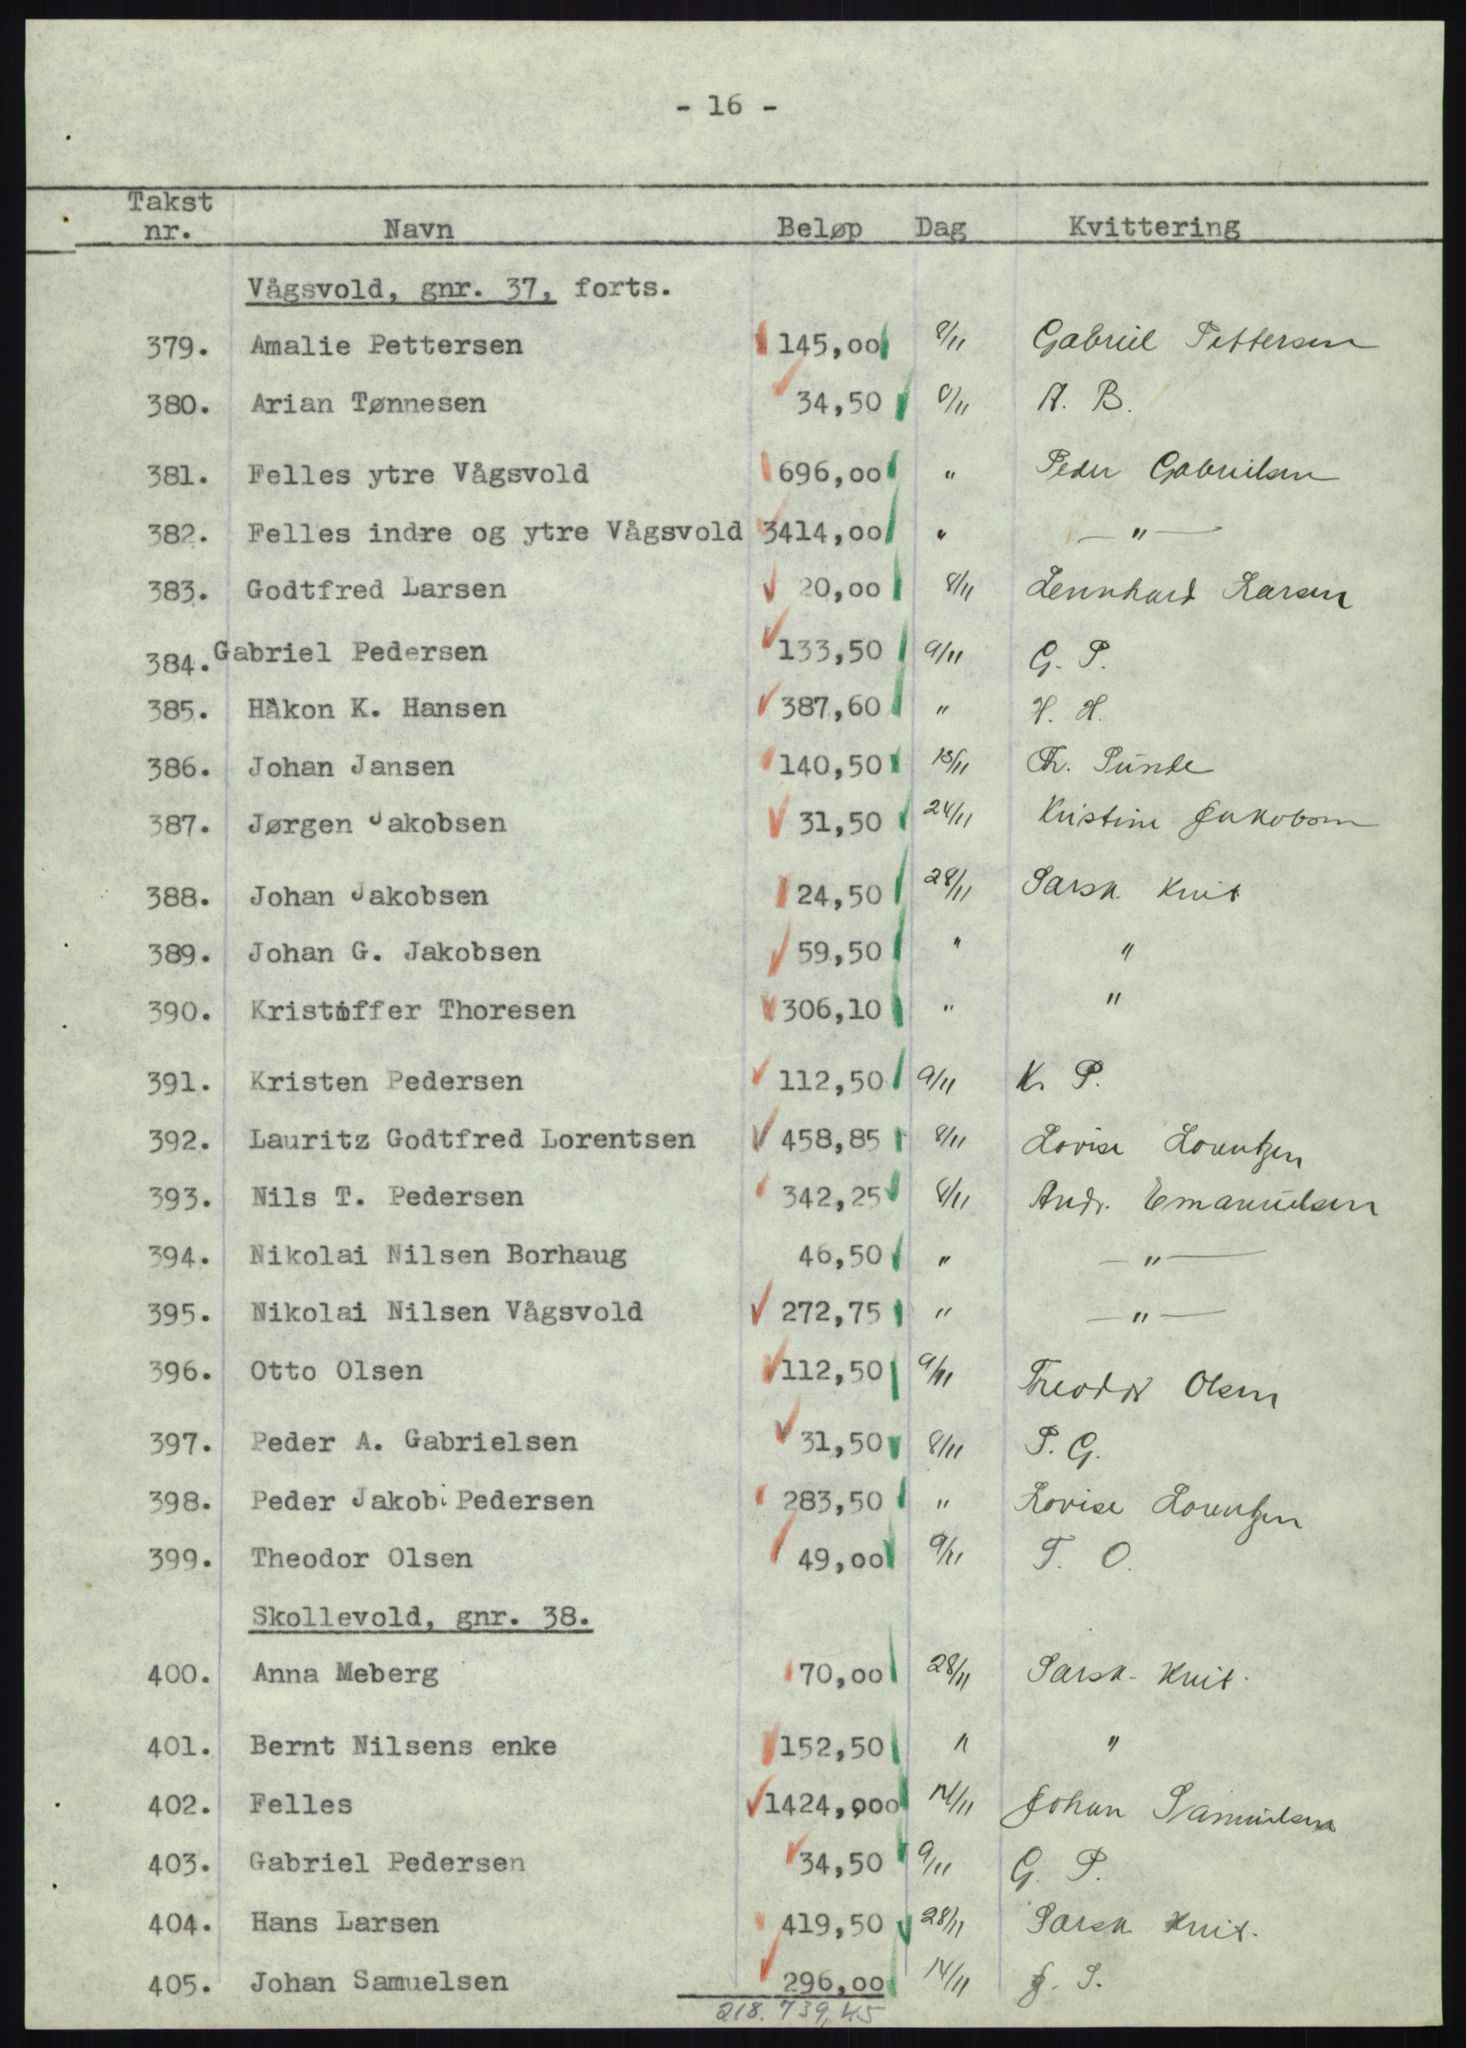 - 16 -
Takst nr. Navn Beløp Dag Kvittering
Vågsvold, gnr. 37, forts.
379. Amalie Pettersen 145,00 8/11 Gabriel Pettersen
380. Arian Tønnesen 34,50 8/11 A. B.
381. Felles ytre Vågsvold 696,00 " Peder Gabrielsen
382. Felles indre og ytre Vågsvold 3414,00 " — " —
383. Godtfred Larsen 20,00 8/11 Lennhard Larsen
384. Gabriel Pedersen 133,50 9/11 G. P.
385. Håkon K. Hansen 387,60 " H. H.
386. Johan Jansen 140,50 13/11 Th. Sunde
387. Jørgen Jakobsen 31,50 24/11 Kristine Jakobsen
388. Johan Jakobsen 24,50 28/11 Særsk. Kvit
389. Johan G. Jakobsen 59,50 " "
390. Kristoffer Thoresen 306,10 " "
391. Kristen Pedersen 112,50 9/11 K. P.
392. Lauritz Godtfred Lorentsen 458,85 8/11 Lovise Lorentzen
393. Nils T. Pedersen 342,25 8/11 Andr. Emanuelsen
394. Nikolai Nilsen Borhaug 46,50 " — " —
395. Nikolai Nilsen Vågsvold 272,75 " — " —
396. Otto Olsen 112,50 9/11 Theodor Olsen
397. Peder A. Gabrielsen 31,50 8/11 P. G.
398. Peder Jakob Pedersen 283,50 " Lovise Lorentzen
399. Theodor Olsen 49,00 9/11 T. O.
Skollevold, gnr. 38.
400. Anna Meberg 70,00 28/11 Særsk. Kvit.
401. Bernt Nilsens enke 152,50 " "
402. Felles 1424,000 14/11 Johan Samuelsen
403. Gabriel Pedersen 34,50 9/11 G. P.
404. Hans Larsen 419,50 28/11 Særsk. Kvit.
405. Johan Samuelsen 296,00 14/11 J. S.
218.739,45